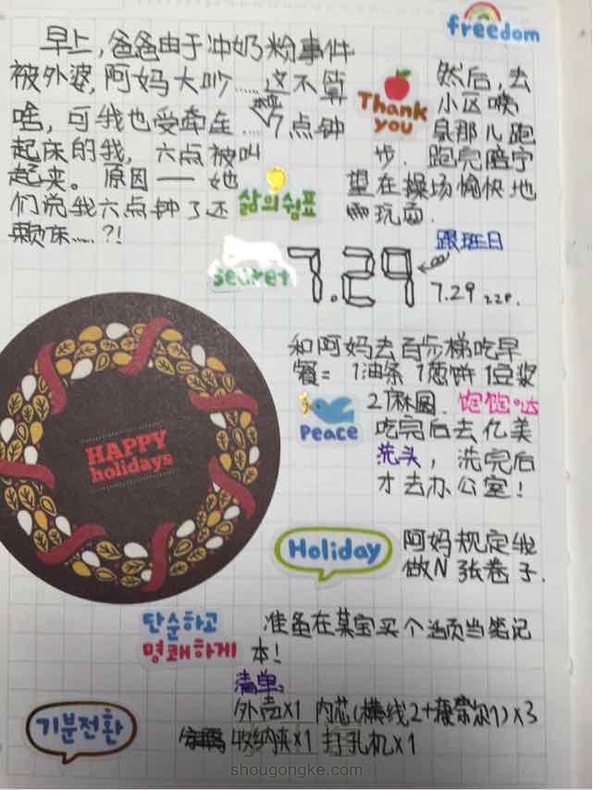 freedom
早上,爸爸由于冲奶粉事件
被外婆,阿妈大吵……这不算
啥,可我也受牵连……7点钟
起床的我,六点被叫
起来。原因——她
们说我六点钟了还
赖床……?!
Thank
you
然后,去
小区喉
泉那儿跑
步.跑完陪宁
望在操场愉快地
玩耍.
삶의쉼표
secret
7.29
跟班日
7.29
和阿妈去百步梯吃早
餐=1油条 1葱饼 1豆浆
2麻圆.饱饱哒
Peace
吃完后去亿美
洗头,洗完后
才去办公室!
HAPPY
holidays
Holiday
阿妈规定我
做N张卷子.
단순하고
명쾌하게
准备在某宝买个活页当笔记
本!
清单:
기분전환
外壳x1 内芯(横线2+康奈尔1)x3
收纳夹x1 打孔机x1
shougongke.com